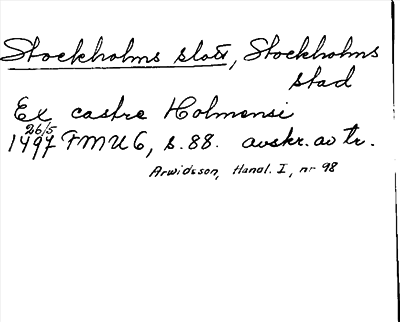 Stockholms slott, Stockholms
stad
Ex castro Holmensi
26/5
1497 FMU 6, s. 88. avskr. av tr.
Arwidsson, Handl. I, nr 98